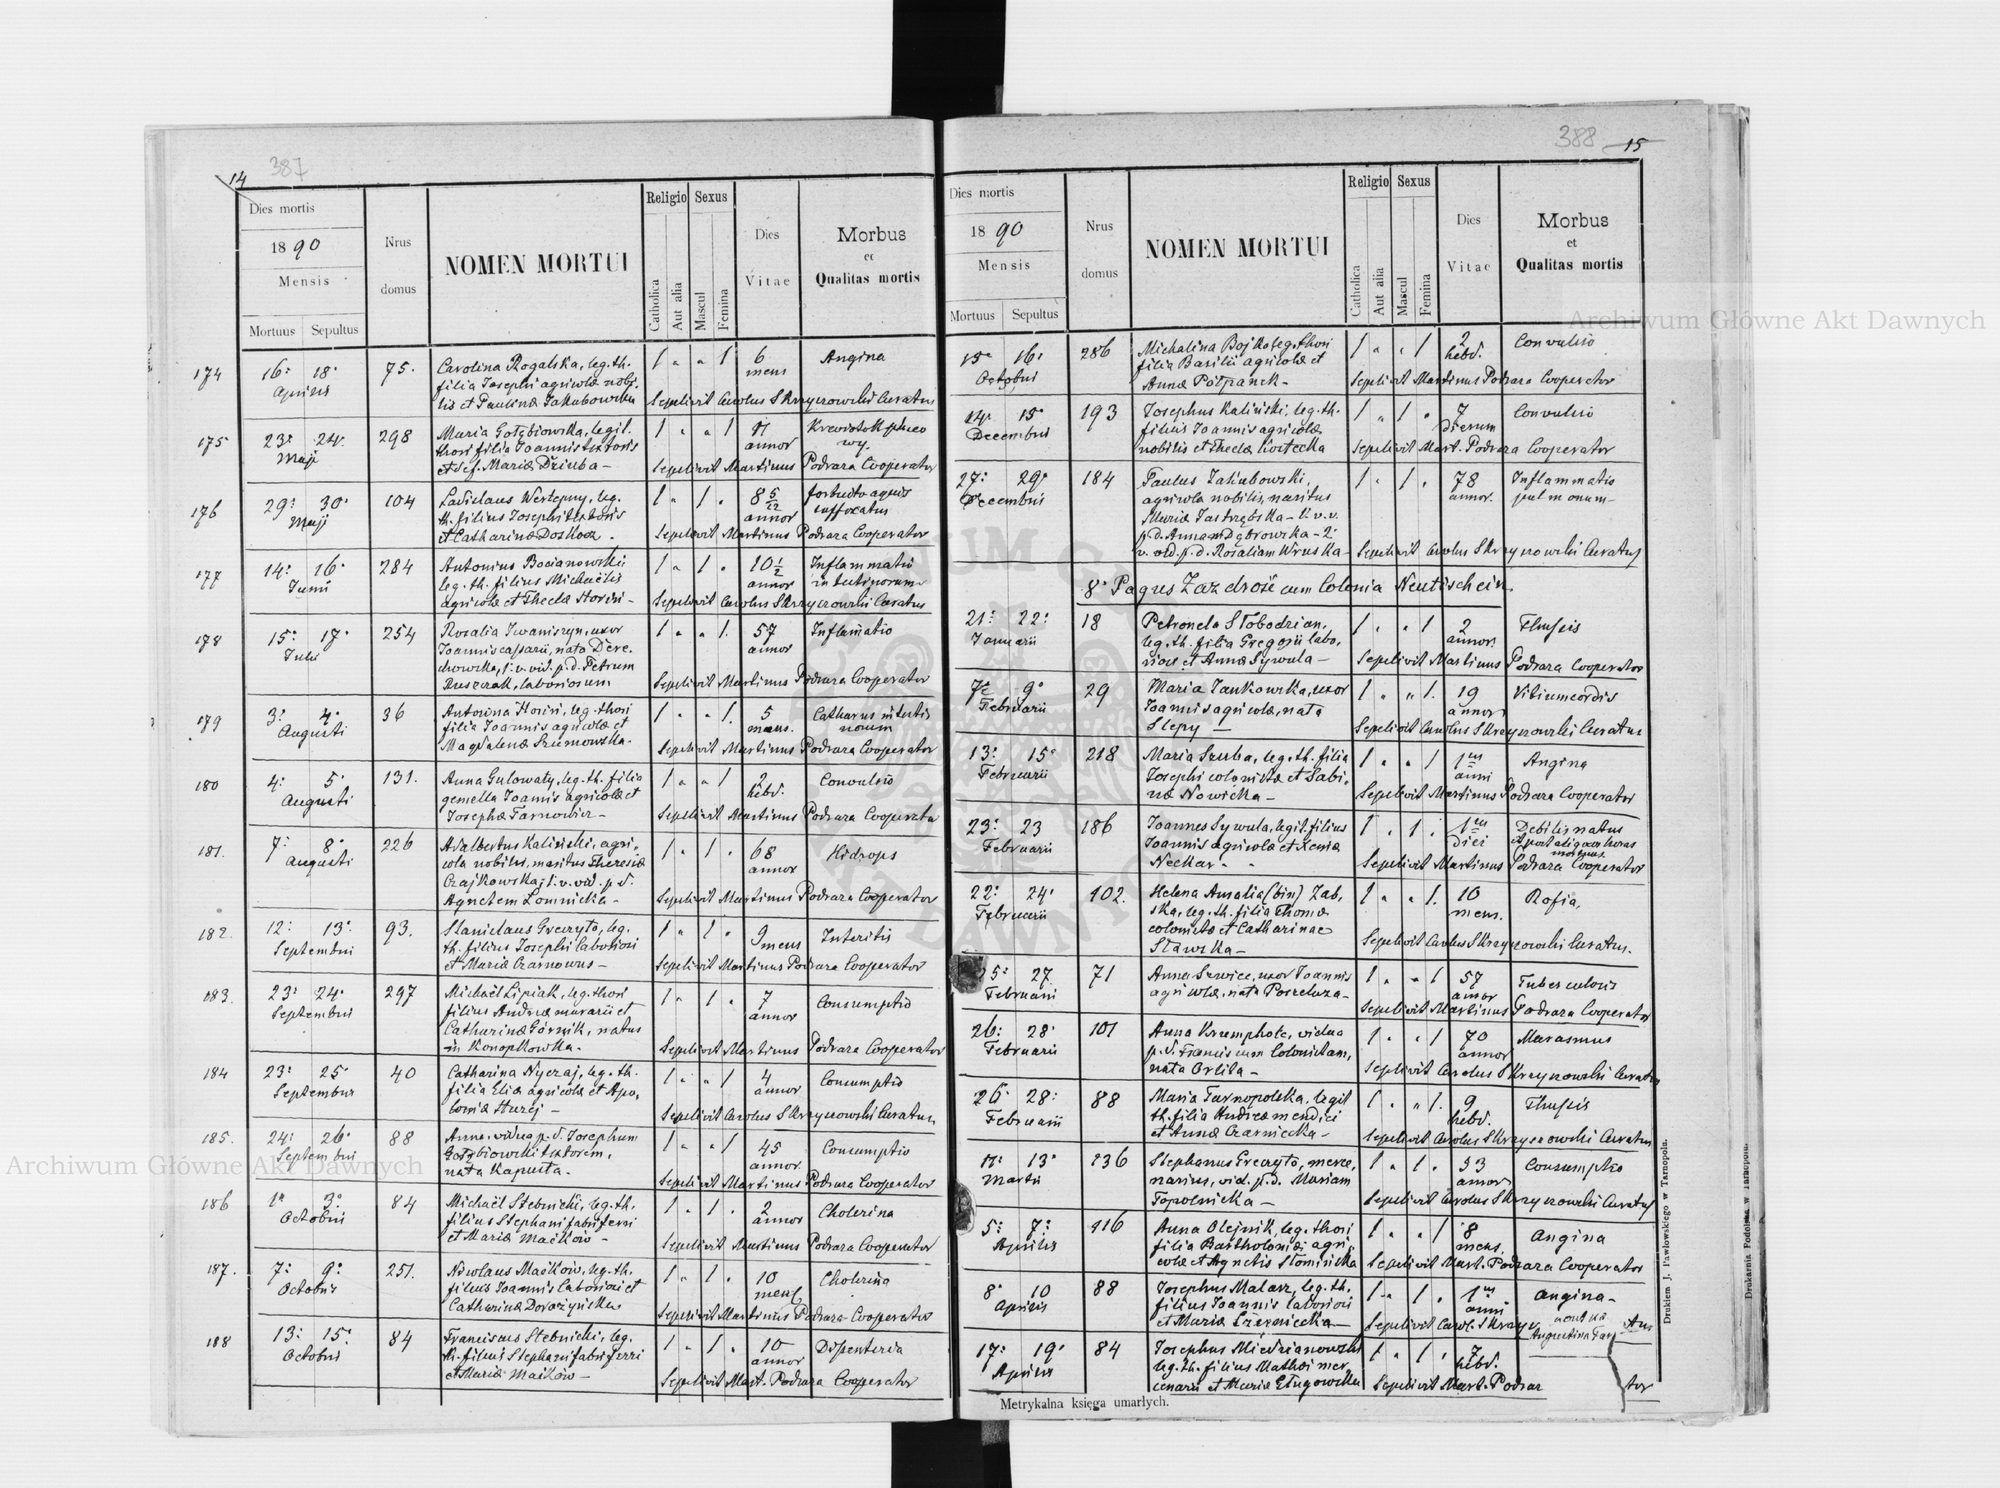 14
387
Dies mortis
1890
Mensis
Mortuus Sepultus
Nrus
domus
NOMEN MORTUI
Religio
Catholica
Aut alia
Sexus
Mascul
Femina
Dies
Vitae
Morbus
et
Qualitas mortis
174 16. 18. Aprilis 75. 1 „ „ 1 6 mens Angina
Carolina Rogalska, leg. th.
filia Josephi agricolæ nobi-
lis et Paulinæ Jakubowska
Sepelivit Carolus Skrzyszowski Curatus
175 23. 24. Maji 298 1 „ „ 1 annor
Maria Gołębiowska, legit.
thori filia Joannis textoris
Mariæ Dziuba –
Sepelivit Martinus Podraza Cooperator
176 29. 30. Maji 104 1 „ 1 . annor
leg.
th. filius Josephi textoris
et Catharinæ
fortuito aquis
suffocatus
Sepelivit Martinus Podraza Cooperator
177 14. 16. Junii 284 1 „ 1 . 10 1/2 annor
Antonius Bocianowski
leg. th. filius Michaëlis
agricolæ et Theclæ
Inflammatio
intestinorum
Sepelivit Carolus Skrzyszowski Curatus
178 15. 17. Julii 254 1 „ „ 1. 57 annor Inflamatio
Rosalia Iwaniszyn, uxor
Joannis nata Dere-
chowska, 1. v. vid. p. d. Petrum
laboriosum
Sepelivit Martinus Podraza Cooperator
179 3. 4. Augusti 36 1 „ „ 1. 5 mens.
leg. thori
filia Joannis agricolæ et
Magdalenæ
Catharus intesti
norum
Sepelivit Martinus Podraza Cooperator
180 4. 5. Augusti 131. 1 „ „ 1 2 hebd. Convulsio
Anna Gulowaty, leg. th. filia
gemella Joannis agricolæ et
Josephæ Tarnowicz –
Sepelivit Martinus Podraza Cooperator
181. 7. 8. Augusti 226 1 „ 1 . 68 annor Hidrops
Adalbertus Kaliński, agri-
cola nobilis, maritus Theresiæ
Czajkowska, 1. v. vid. p. d.
Agnetem Łomnicka –
Sepelivit Martinus Podraza Cooperator
182. 12. 13. Septembris 93. 1 „ 1 . 9 mens
Stanislaus Greczyło, leg.
th. filius Josephi laboriosi
et Mariæ
Sepelivit Martinus Podraza Cooperator
183. 23. 24. Septembris 297 1 „ 1 . 7 annor Consumptio
Michaël Lipiak, leg. thori
filius Andreæ murarii et
Catharinæ Górnik, natus
in Konopkowka.
Sepelivit Martinus Podraza Cooperator
184 23. 25. Septembris 40 1 „ „ 1 4 annor Consumptio
Catharina Nyczaj, leg. th.
filia Eliæ agricolæ et Apo-
loniæ
Sepelivit Carolus Skrzyszowski Curatus
185. 24. 26. Septembris 88 1 „ „ 1 45 annor Consumptio
Anna, vidua p. d. Josephum
Gołębiowski textorem,
nata Kapusta.
Sepelivit Martinus Podraza Cooperator
186 1. 3. Octobris 84 1 „ 1 . 2 annor Cholerina
Michaël Stebnicki, leg. th.
filius Stephani fabri ferri
et Mariæ Maćków –
Sepelivit Martinus Podraza Cooperator
187. 7. 9. Octobris 251. 1 „ 1 . 10 mens Cholerina
Nicolaus Maćków, leg. th.
filius Joannis laboriosi et
Catharinæ Dorożyńska
Sepelivit Martinus Podraza Cooperator
188 13. 15. Octobris 84 1 „ 1 . 10 annor Dissenteria
Franciscus Stebnicki, leg.
th. filius Stephani fabri ferri
et Mariæ Maćków –
Sepelivit Mart. Podraza Cooperator
388
15
Dies mortis
1890
Mensis
Mortuus Sepultus
Nrus
domus
NOMEN MORTUI
Religio
Catholica
Aut alia
Sexus
Mascul
Femina
Dies
Vitae
Morbus
et
Qualitas mortis
15. 16. Octobris 286 1 „ „ 1 2 hebd. Convulsio
Michalina Bojko, leg. thori
filia Basilii agricolæ et
Annæ
Sepelivit Martinus Podraza Cooperator
14. 15. Decembris 193 1 „ 1 . 7 dierum Convulsio
Josephus Kaliński, leg. th.
filius Joannis agricolæ
nobilis et Theclæ Kostecka
Sepelivit Mart. Podraza Cooperator
27. 29. Decembris 184 1 „ 1 . 78 annor.
Paulus Jakubowski,
agricola nobilis, maritus
Mariæ Jastrzębska – 1. v. v.
p. d. Annam Dąbrowska – 2.
v. vid. p. d. Rosaliam Wruska –
Inflammatio
pulmonum –
Sepelivit Carolus Skrzyszowski Curatus
8. Pagus Zazdrość cum Colonia Neutischein.
21. 22. Januarii 18 1 „ „ 1 2 annor. Thysis
Petronela Słobodzian,
leg. th. filia Gregorii labo-
riosi et Annæ Sywula –
Sepelivit Martinus Podraza Cooperator
7. 9. Februarii 29 1 „ „ 1. 19 annor Vitium cordis
Maria Jankowska, uxor
Joannis agricolæ, nata
Slepy –
Sepelivit Carolus Skrzyszowski Curatus
13. 15. Februarii 218 1 „ „ 1 1 anni Angina
Maria Szuba, leg. th. filia
Josephi colonistæ et Sabi-
næ Nowicka –
Sepelivit Martinus Podraza Cooperator
23. 23 Februarii 186 1 . 1 . 1 diei
Joannes Sywula, legit. filius
Joannis agricolæ et Xeniæ
Neckar.
Debilis natus
et post aliquas horas
mortuus
Sepelivit Martinus Podraza Cooperator
22. 24. Februarii 102. 1 „ „ 1. 10 mens.
Helena Amalia (bin) Zab-
ska, leg. th. filia Thomæ
colonistæ et Catharinae
Stawska –
Sepelivit Carolus Skrzyszowski Curatus.
25. 27. Februarii 71 1 „ „ 1 57 annor Tuberculosis
Anna Szwiec, uxor Joannis
agricolæ, nata
Sepelivit Martinus Podraza Cooperator
26. 28. Februarii 101 1 „ „ 1 70 annor Marasmus
Anna vidua
p. d. Franciscum Colonistam,
nata Orlita –
Sepelivit Carolus Skrzyszowski Curatus
26. 28. Februarii 88 1 . „ 1. 9 hebd. Thysis
Maria Tarnopolska, legit
th. filia Andreæ mendici
et Annæ Czarniecka –
Sepelivit Carolus Skrzyszowski Curatus
11. 13. Martii 136 1 „ 1 . 33 annor Consumptio
Stephanus Greczyło, merce-
narius, vid. p. d. Mariam
Topolnicka –
Sepelivit Carolus Skrzyszowski Curatus
5. 7. Aprilis 116 1 „ „ 1 8 mens. Angina
Anna Olejnik, leg. thori
filia Bartholomæi agri-
colæ et Agnetis Słomińska
Sepelivit Mart. Podraza Cooperator
8. 10 Aprilis 88 1 „ 1 . 1 anni Angina –
Josephus Malarz, leg. th.
filius Joannis laboriosi
et Mariæ
Sepelivit Carol. Skrzy
17. 19. Aprilis 84 1 „ 1 . 7 hebd.
Josephus Miedzianowski
leg. th. filius Mathæi mer-
cenarii et Mariæ Długowska
Sepelivit Mart. Podraz tor
Metrykalna księga umarłych.
Drukiem J. Pawłowskiego w Tarnopolu.
Archiwum Główne Akt Dawnych
Archiwum Główne Akt Dawnych